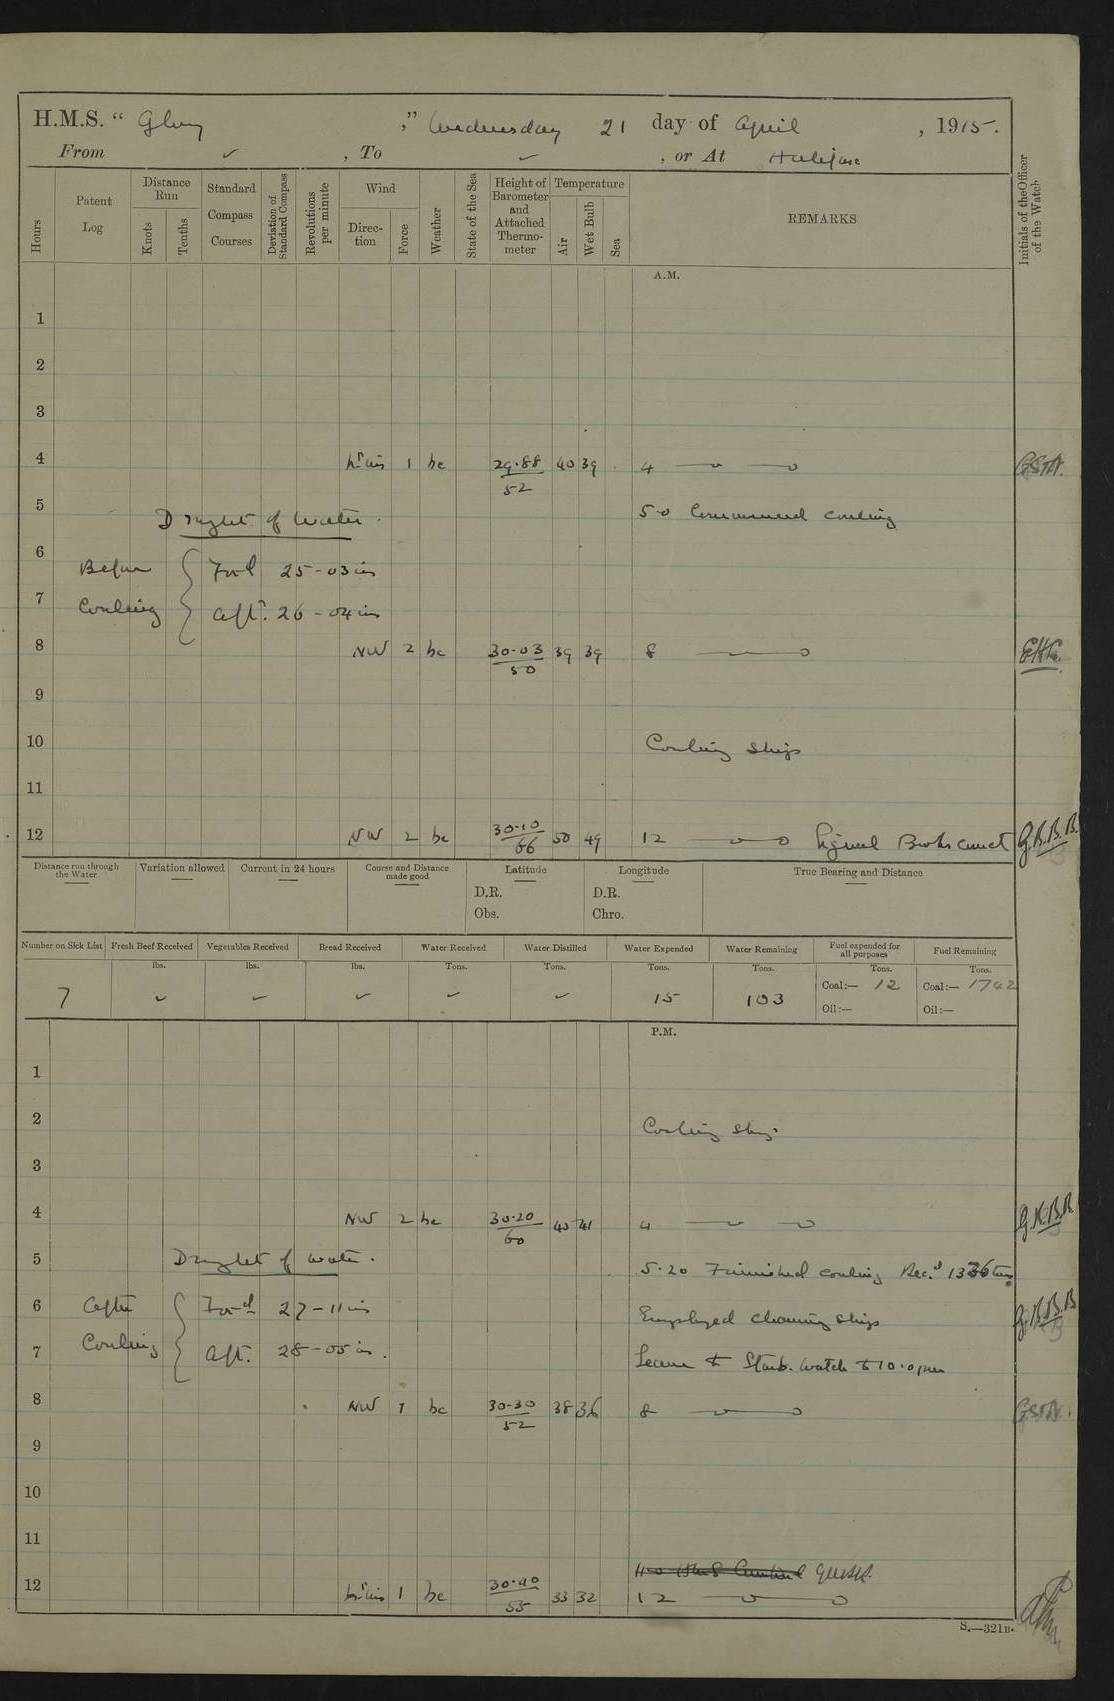 H.M.S. “ Glory ,” Wednesday 21 day of April , 1915.
From ✓ , To ✓ , or At Halifax
Hours
Patent Log
Distance Run
Knots
Tenths
Standard Compass Courses
Deviation of Standard Compass
Revolutions per minute
Wind
Direction
Force
Weather
State of the Sea
Height of Barometer and Attached Thermometer
Temperature
Air
Wet Bulb
Sea
REMARKS
Initials of the Officer of the Watch
A.M.
1
2
3
4 1 bc 29.88/52 40 39 4
5 5-0 Commenced coaling
Draught of Water.
6
Before Coaling { For'd 25-03 ins
7
Aft. 26-04 ins
8 NW 2 bc 30.03/50 39 39 8
9
10 Coaling Ship
11
12 NW 2 bc 30.10/66 50 49 12 Signal Books correct G.B.B.B.
Distance run through the Water
Variation allowed
Current in 24 hours
Course and Distance made good
Latitude
D.R.
Obs.
Longitude
D.R.
Chro.
True Bearing and Distance
Number on Sick List
Fresh Beef Received
Vegetables Received
Bread Received
Water Received
Water Distilled
Water Expended
Water Remaining
Fuel expended for all purposes
Fuel Remaining
lbs. lbs. lbs. Tons. Tons. Tons. Tons. Tons. Tons.
7 ✓ ✓ ✓ ✓ ✓ 15 103 Coal:— 12 Coal:— 1742
Oil:— Oil:—
P.M.
1
2 Coaling Ship
3
4 NW 2 bc 30.20/60 43 41 4
5 5.20 Finished coaling Rec.d 1336 tons
Draught of water.
6 Employed cleaning ship
After Coaling { For'd 27-11 ins
7 Leave to Starb. watch to 10.0 pm
Aft. 28-05 in.
8 NW 1 bc 30.30/52 38 36 8
9
10
11
12 1 bc 30.40/55 33 32 12
S.—321B.